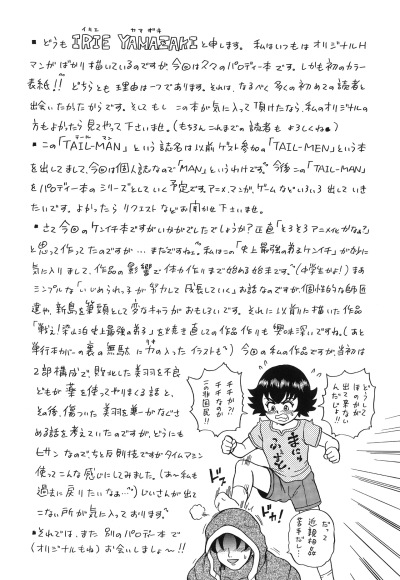 いりえ やまざき
■どうも IRIE YAMAZAKI と申します。私はいつもは オリジナルH
マンガばかり描いているのですが、今回は久々のパロディー本です。しかも初のカラー
表紙!!どちらとも理由は一つであります。それは、なるべく多くの初めての読者と
出会いたかったからです。そしてもし この本が気に入って頂けたなら、私のオリジナルの
方もよかったら見てやって下さいませ。(もちろんこれまでの読者もよろしくね●)
■この「TAIL-MAN」という誌名は以前ゲスト参加の「TAIL-MEN」という本
を出してまして、今回は個人誌なので「MAN」というわけです。今後この「TAIL-MAN」
をパロディー本のシリーズとしていく予定です。アニメ、マンガ、ゲームなどいろいろ出していき
たいです。よかったら リクエストなどお聞かせ下さいませ。
■さて今回のケンイチ本ですがいかがでしたでしょうか?正直「そろそろアニメ化かなぁ?」
と思って作ってたのですが…まだですねぇ。私はこの「史上最強の弟子ケンイチ」がかなり
気に入りまして、作品の影響で体力作りまで始める始末です。(中学生かよ!)まあ
シンプルな「いじめられっ子が努力して成長していく」お話なのですが、個性的な師匠
達や、新島を筆頭として変なキャラがおもしろいです。それに以前に描いた作品
「戦え!梁山泊史上最強の弟子」を焼き直しての作品作りも興味深いですね。(あと
単行本カバーの裏の無駄に力の入ったイラストも)今回の私の作品ですが、当初は
2部構成で、敗北した美羽を不良
どもが薬を使ってヤりまくる話と、
その後、傷ついた美羽を兼一がなぐさ
める話を考えていたのですが、どうにも
ヒサンなのでちと反則技ですがタイムマシン
使ってこんな感じにしてみました。(あ〜私も
過去に戻りたいなぁ…)じいさんが出て
こない所が気に入っております。
■それでは、また 別のパロディー本で
(オリジナルもね)お会いしましょ〜!!
どうして
ほのかが
出て来ない
んだじょ!!
チチか?!
チチなのか
この非国民!!
まにゅ
ふぁ
ドカッ
ドカッ
だって
近親相姦
苦手だし…